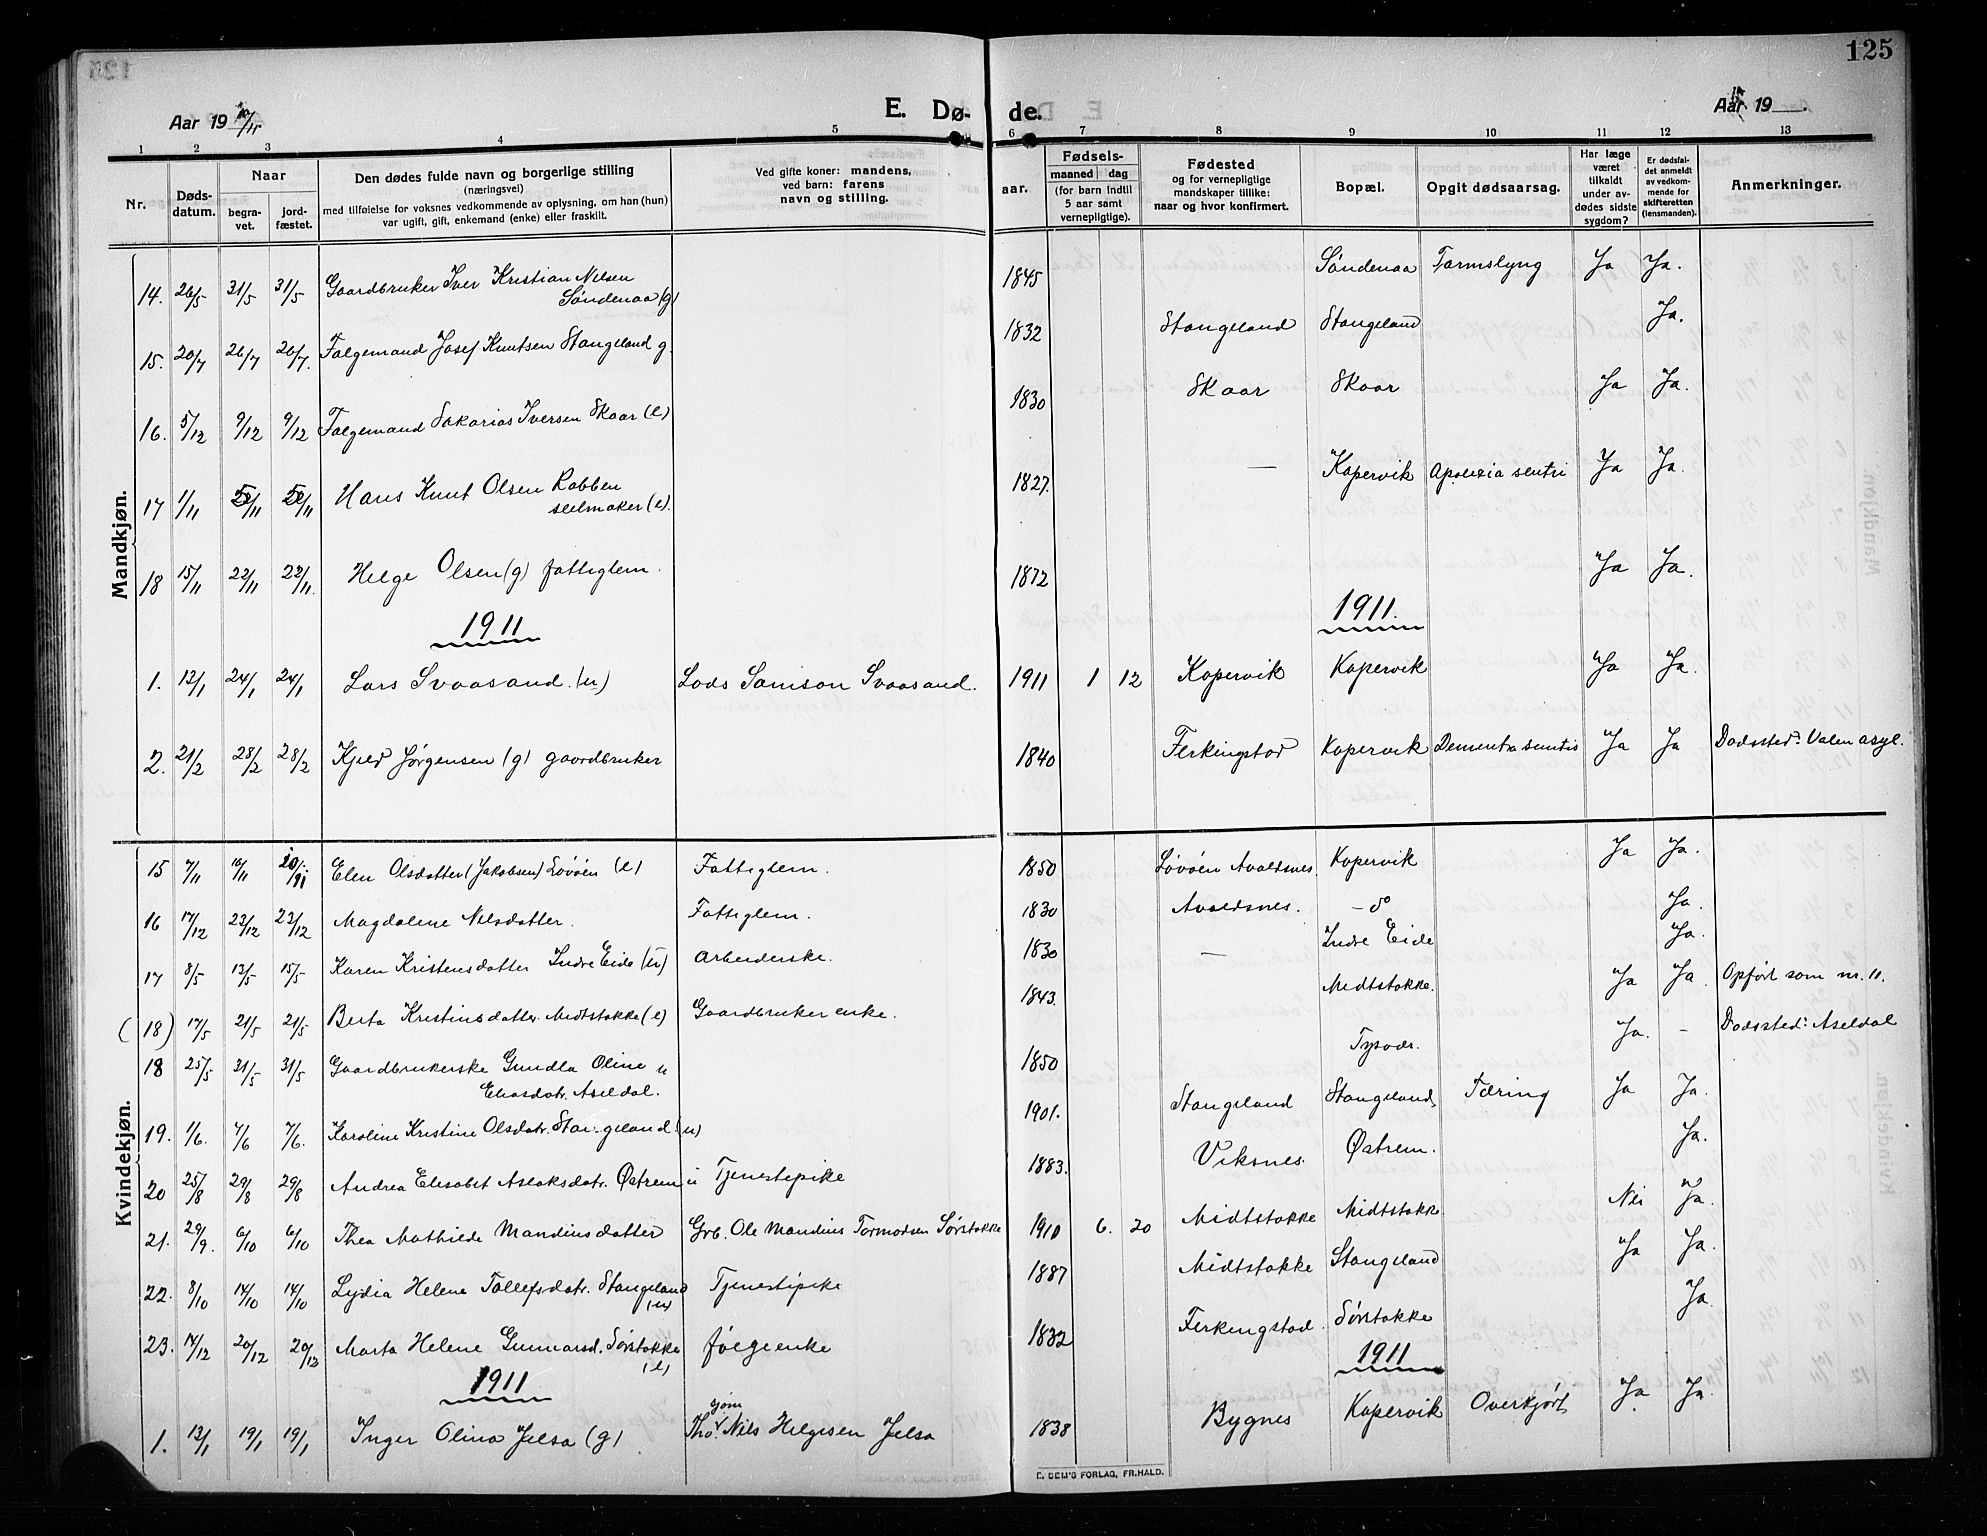 125
Aar 19 10/11
E. Dø- de.
Aar 19
1 2 3 4 5 6 7 8 9 10 11 12 13
Nr.
Døds-datum.
Naar
begra-vet.
jord-fæstet.
Den dødes fulde navn og borgerlige stilling
(næringsvei)
med tilføielse for voksnes vedkommende av oplysning, om han (hun)
var ugift, gift, enkemand (enke) eller fraskilt.
Ved gifte koner: mandens,
ved barn: farens
navn og stilling.
aar.
Fødsels-
maaned dag
(for barn indtil
5 aar samt
vernepligtige).
Fødested
og for vernepligtige
mandskaper tillike:
naar og hvor konfirmert.
Bopæl.
Opgit dødsaarsag.
Har læge
været
tilkaldt
under av-
dødes sidste
sygdom?
Er dødsfal-
det anmeldt
av vedkom-
mende for
skifteretten
(lensmanden).
Anmerkninger.
Mandkjøn.
14. 26/5 31/5 31/5 Gaardbruker Iver Kristian Nilsen Søndenaa (g) 1845 Søndenaa Tarmslyng Ja Ja.
15. 20/7 26/7 26/7 Følgemand Josef Knutsen Stangeland g. 1832 Stangeland Stangeland Ja.
16. 5/12 9/12 9/12 Følgemand Sakarias Iversen Skaar (e) 1830 Skaar Skaar Ja Ja.
17 1/11 /11 /11 Hans Knut Olsen Rabben seilmaker (e). 1827. — Kopervik Apolexia senili Ja Ja.
18 15/11 22/11 22/11. Helge Olsen (g) fattiglem. 1872 Ja Ja.
1911 1911.
1. 13/1 24/1 24/1 Lars Svaasand. (u) Lods Samson Svaasand. 1911 1 12 Kopervik Kopervik Ja Ja.
2. 21/2 28/2 28/2 Kjeld Jørgensen (g) gaardbruker 1840 Ferkingstad Kopervik Dementia senilis Ja Ja Dødssted: Valen asyl.
Kvindekjøn.
15 7/11 16/11 Elen Olsdatter (Jakobsen) Løvøen (e) Fattiglem. 1850 Løvøen Avaldsnes. Kopervik Ja Ja.
16 17/12 23/12 23/12 Magdalene Nilsdatter. Fattiglem. 1830 Avaldsnes. — do Ja.
17 8/5 13/5 15/5 Karen Kristensdatter Indre Eide (u) Arbeiderske. 1830 — Indre Eide Ja.
(18) 17/5 21/5 21/5 Berta Kristinsdatter Midtstokke (e) Gaardbruker enke. 1843. Midtstokke. Ja Ja. Opført som nr. 11.
18 25/5 31/5 31/5 Gaardbrukerske Gundla Oline u Eliasdatr. Aseldal. 1850 Tysvær. Ja. — Dødssted: Aseldal
19. 1/6. 7/6 7/6. Karoline Kristine Olsdatr. Stangeland (u) 1901. Stangeland Stangeland, Tæring Ja Ja.
20 25/8 29/8 29/8 Andrea Elisabet Aslaksdatr. Østrem u Tjenestepike 1883. Viksnes. Østrem. Ja.
21. 29/9. 6/10 6/10 Thea Mathilde Mandiusdatter Grb. Ole Mandius Tormodsen Sørstokke 1910 6. 20 Midtstokke Midtstokk Nei Ja.
22. 8/10 14/10 14/10 Lydia Helene Tollefsdatr. Stangeland (u) Tjenestepike 1887 Midtstokke Stangeland Ja Ja.
23. 14/12 20/12 20/12 Marta Helene Gunnarsd. Sørstokke (e) følgeenke 1832 Ferkingstad. Sørstokke Ja.
1911 1911
1. 13/1 19/1 19/1 Inger Olina Jelsa (g) Nils Helgesen Jelsa 1838 Bygnes Kopervik Overkjørt Ja Ja.
E. SEM'S FORLAG, FR.HALD.